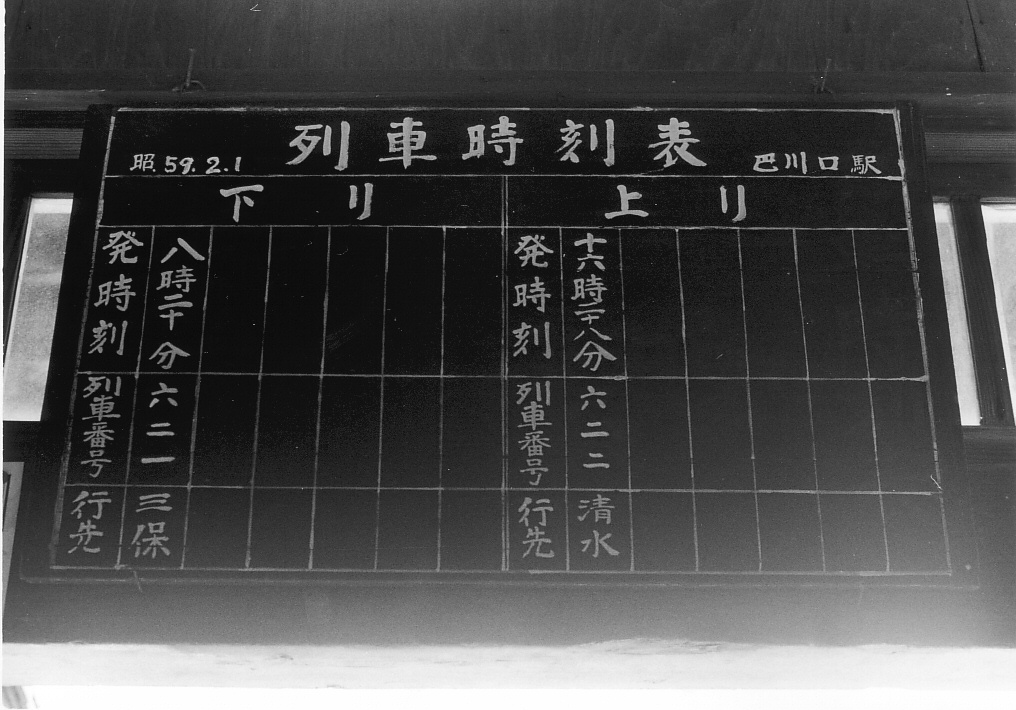 列車時刻表
昭.59.2.1
巴川口駅
下り
上り
発時刻
八時二十分
列車番号
六二一
行先
三保
発時刻
十六時二十八分
列車番号
六二二
行先
清水